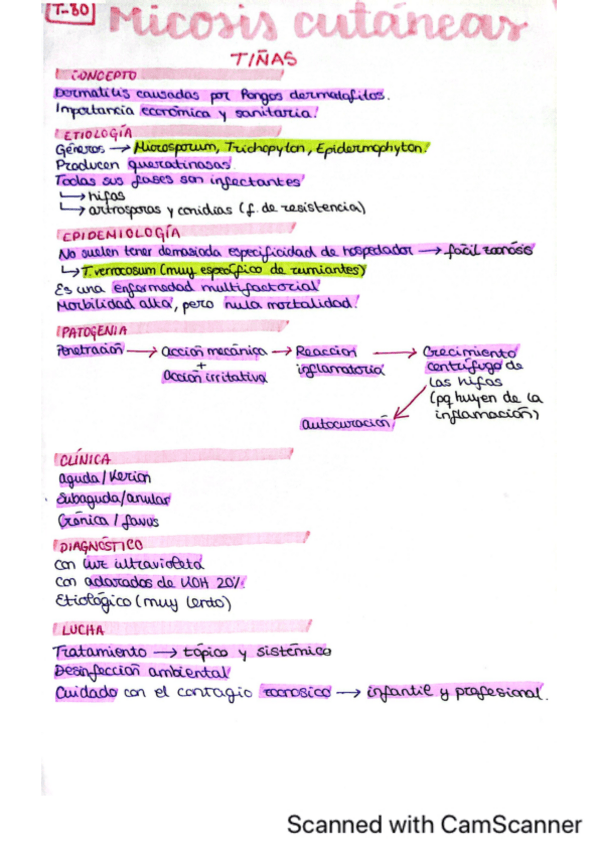 T-80
Micosis cutáneas
TIÑAS
CONCEPTO
Dermatitis causadas por hongos dermatofitos.
Importancia económica y sanitaria.
ETIOLOGÍA
Géneros → Microsporum, Trichopyton, Epidermophyton.
Producen queratinasas
Todas sus fases son infectantes
↳ hifas
↳ artrosporas y conidias (f. de resistencia)
EPIDEMIOLOGÍA
No suelen tener demasiada especificidad de hospedador → fácil zoonosis
↳ T. verrocosum (muy específico de rumiantes)
Es una enfermedad multifactorial
Morbilidad alta, pero nula mortalidad.
PATOGENIA
Penetración → acción mecánica + acción irritativa → Reacción inflamatoria → Crecimiento centrífugo de las hifas (pq huyen de la inflamación)
autocuración
CLÍNICA
aguda / Kerion
Subaguda/anular
Crónica / favus
DIAGNÓSTICO
con luz ultravioleta
con aclarados de KOH 20%
Etiológico (muy lento)
LUCHA
Tratamiento → tópico y sistémico
Desinfección ambiental
Cuidado con el contagio zoonosico → infantil y profesional.
Scanned with CamScanner